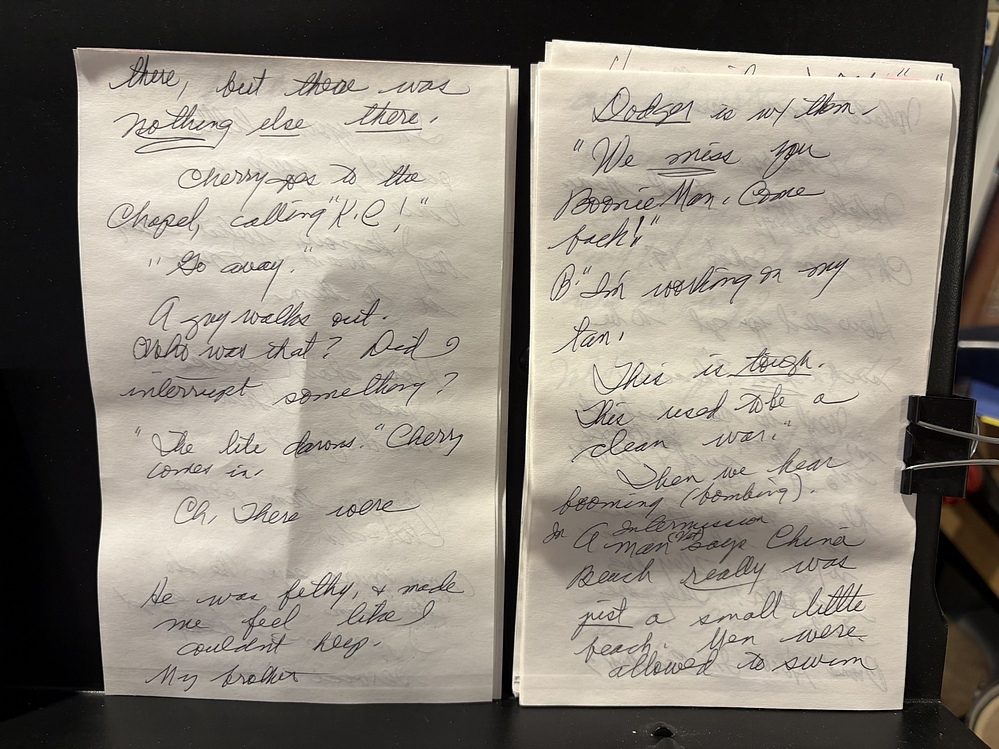 there, but there was
nothing else there.
Cherry goes to the
Chapel, calling "K.C!"
"Go away."
A guy walks out.
Who was that? Did I
interrupt something?
"The lite dawns." Cherry
comes in.
Ch. There were
He was filthy, & made
me feel like I
couldn't help.
My brother
Dodger is w/ them.
"We miss you
Boonie Man. Come
back!"
B. "I'm working on my
tan.
This is tough.
This used to be a
clean war."
Then we hear
booming (bombing).
In Intermission
A man says China
Beach really was
just a small little
beach. Men were
allowed to swim